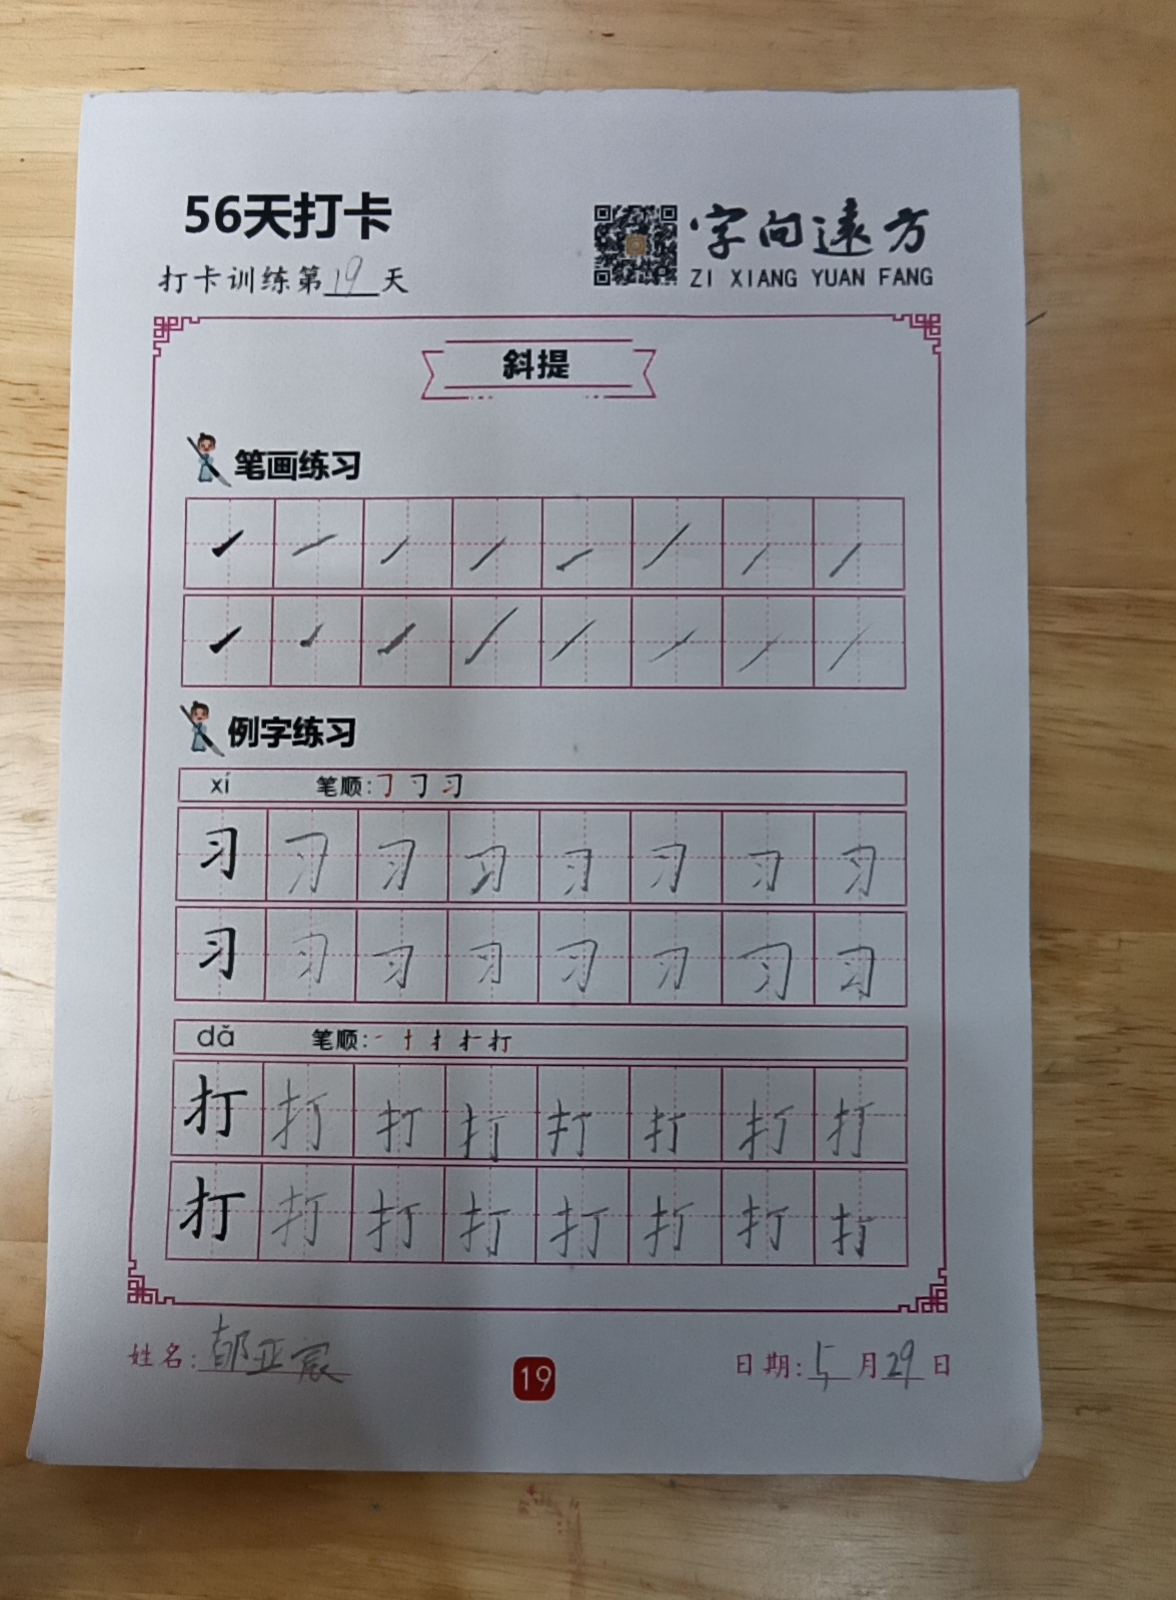 56天打卡
字向远方
打卡训练第19天
ZI XIANG YUAN FANG
斜提
笔画练习
例字练习
xí 笔顺:
习 习 习 习 习 习 习 习
习 习 习 习 习 习 习 习
dǎ 笔顺:
打 打 打 打 打 打 打 打
打 打 打 打 打 打 打 打
姓名:郁亚宸
19
日期:5月29日